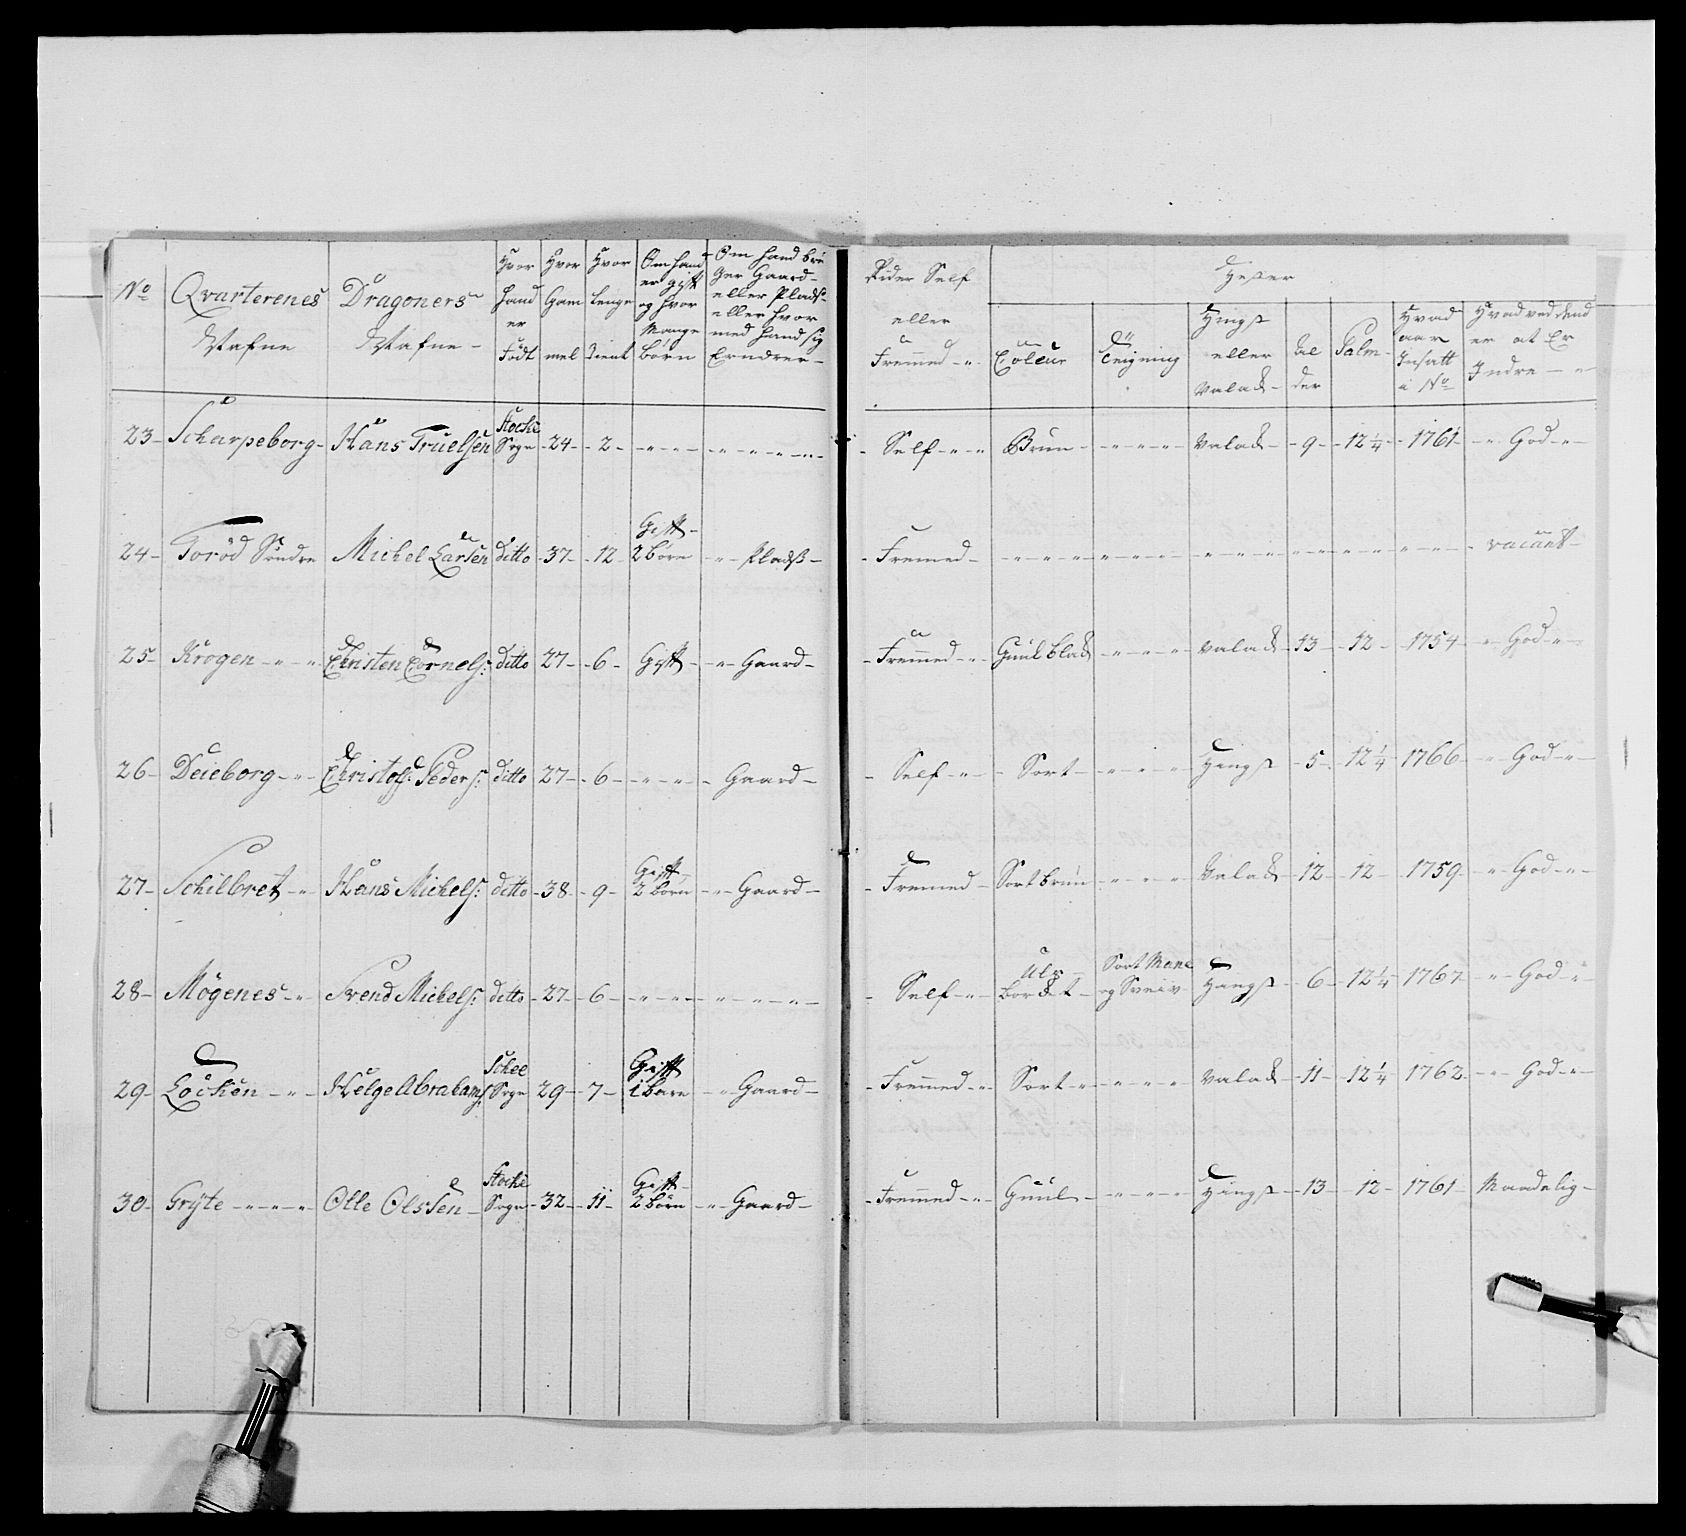 No Qvarterenes Nafne Dragoners Nafne Hvor hand er Födt Hvor Gam mel Hvor lenge tient Om hand er gift og hvor Mange börn Om hand bru ger Gaard eller Plads eller hvor med hand sig Ernærer
Rider Self eller Fremmed Couleur Teigning Hester Hingst eller Valak Al der Palm Hvad aar Insatt i No Hvad ved dend er at Er Indre
23 Scharpeborg Hans Truelsen Stocke Sogn 24 2 Self Brun Valak 9 12 1/4 1761 God
24 Toröd Söndre Michel Larsen ditto 37 12 Gift 2 börn Pladss Fremed vacant
25 Krogen Christen Cornels: ditto 27 6 Gift Gaard Fremmed Guulblak Valak 13 12 1754 God
26 Deieborg Christoff: Peders: ditto 27 6 Gaard Self Sort Hingst 5 12 1/4 1766 God
27 Schilbret Hans Michels: ditto 38 9 Gift 2 börn Gaard Fremed Sortbrun Valak 12 12 1759 God
28 Mögenes Svend Michels: ditto 27 6 Self Ulv Sort Mane og Hingst 6 12 1/4 1767 God
29 Löcken Helge Abrahams: Schee Sogn 29 7 Gift 1 barn Gaard Fremmed Sort Valak 11 12 1/4 1762 God
30 Gryte Olle Olssen Stocke Sogn 32 11 Gift 2 börn Gaard Fremmed Guul Hingst 13 12 1761 Maadelig